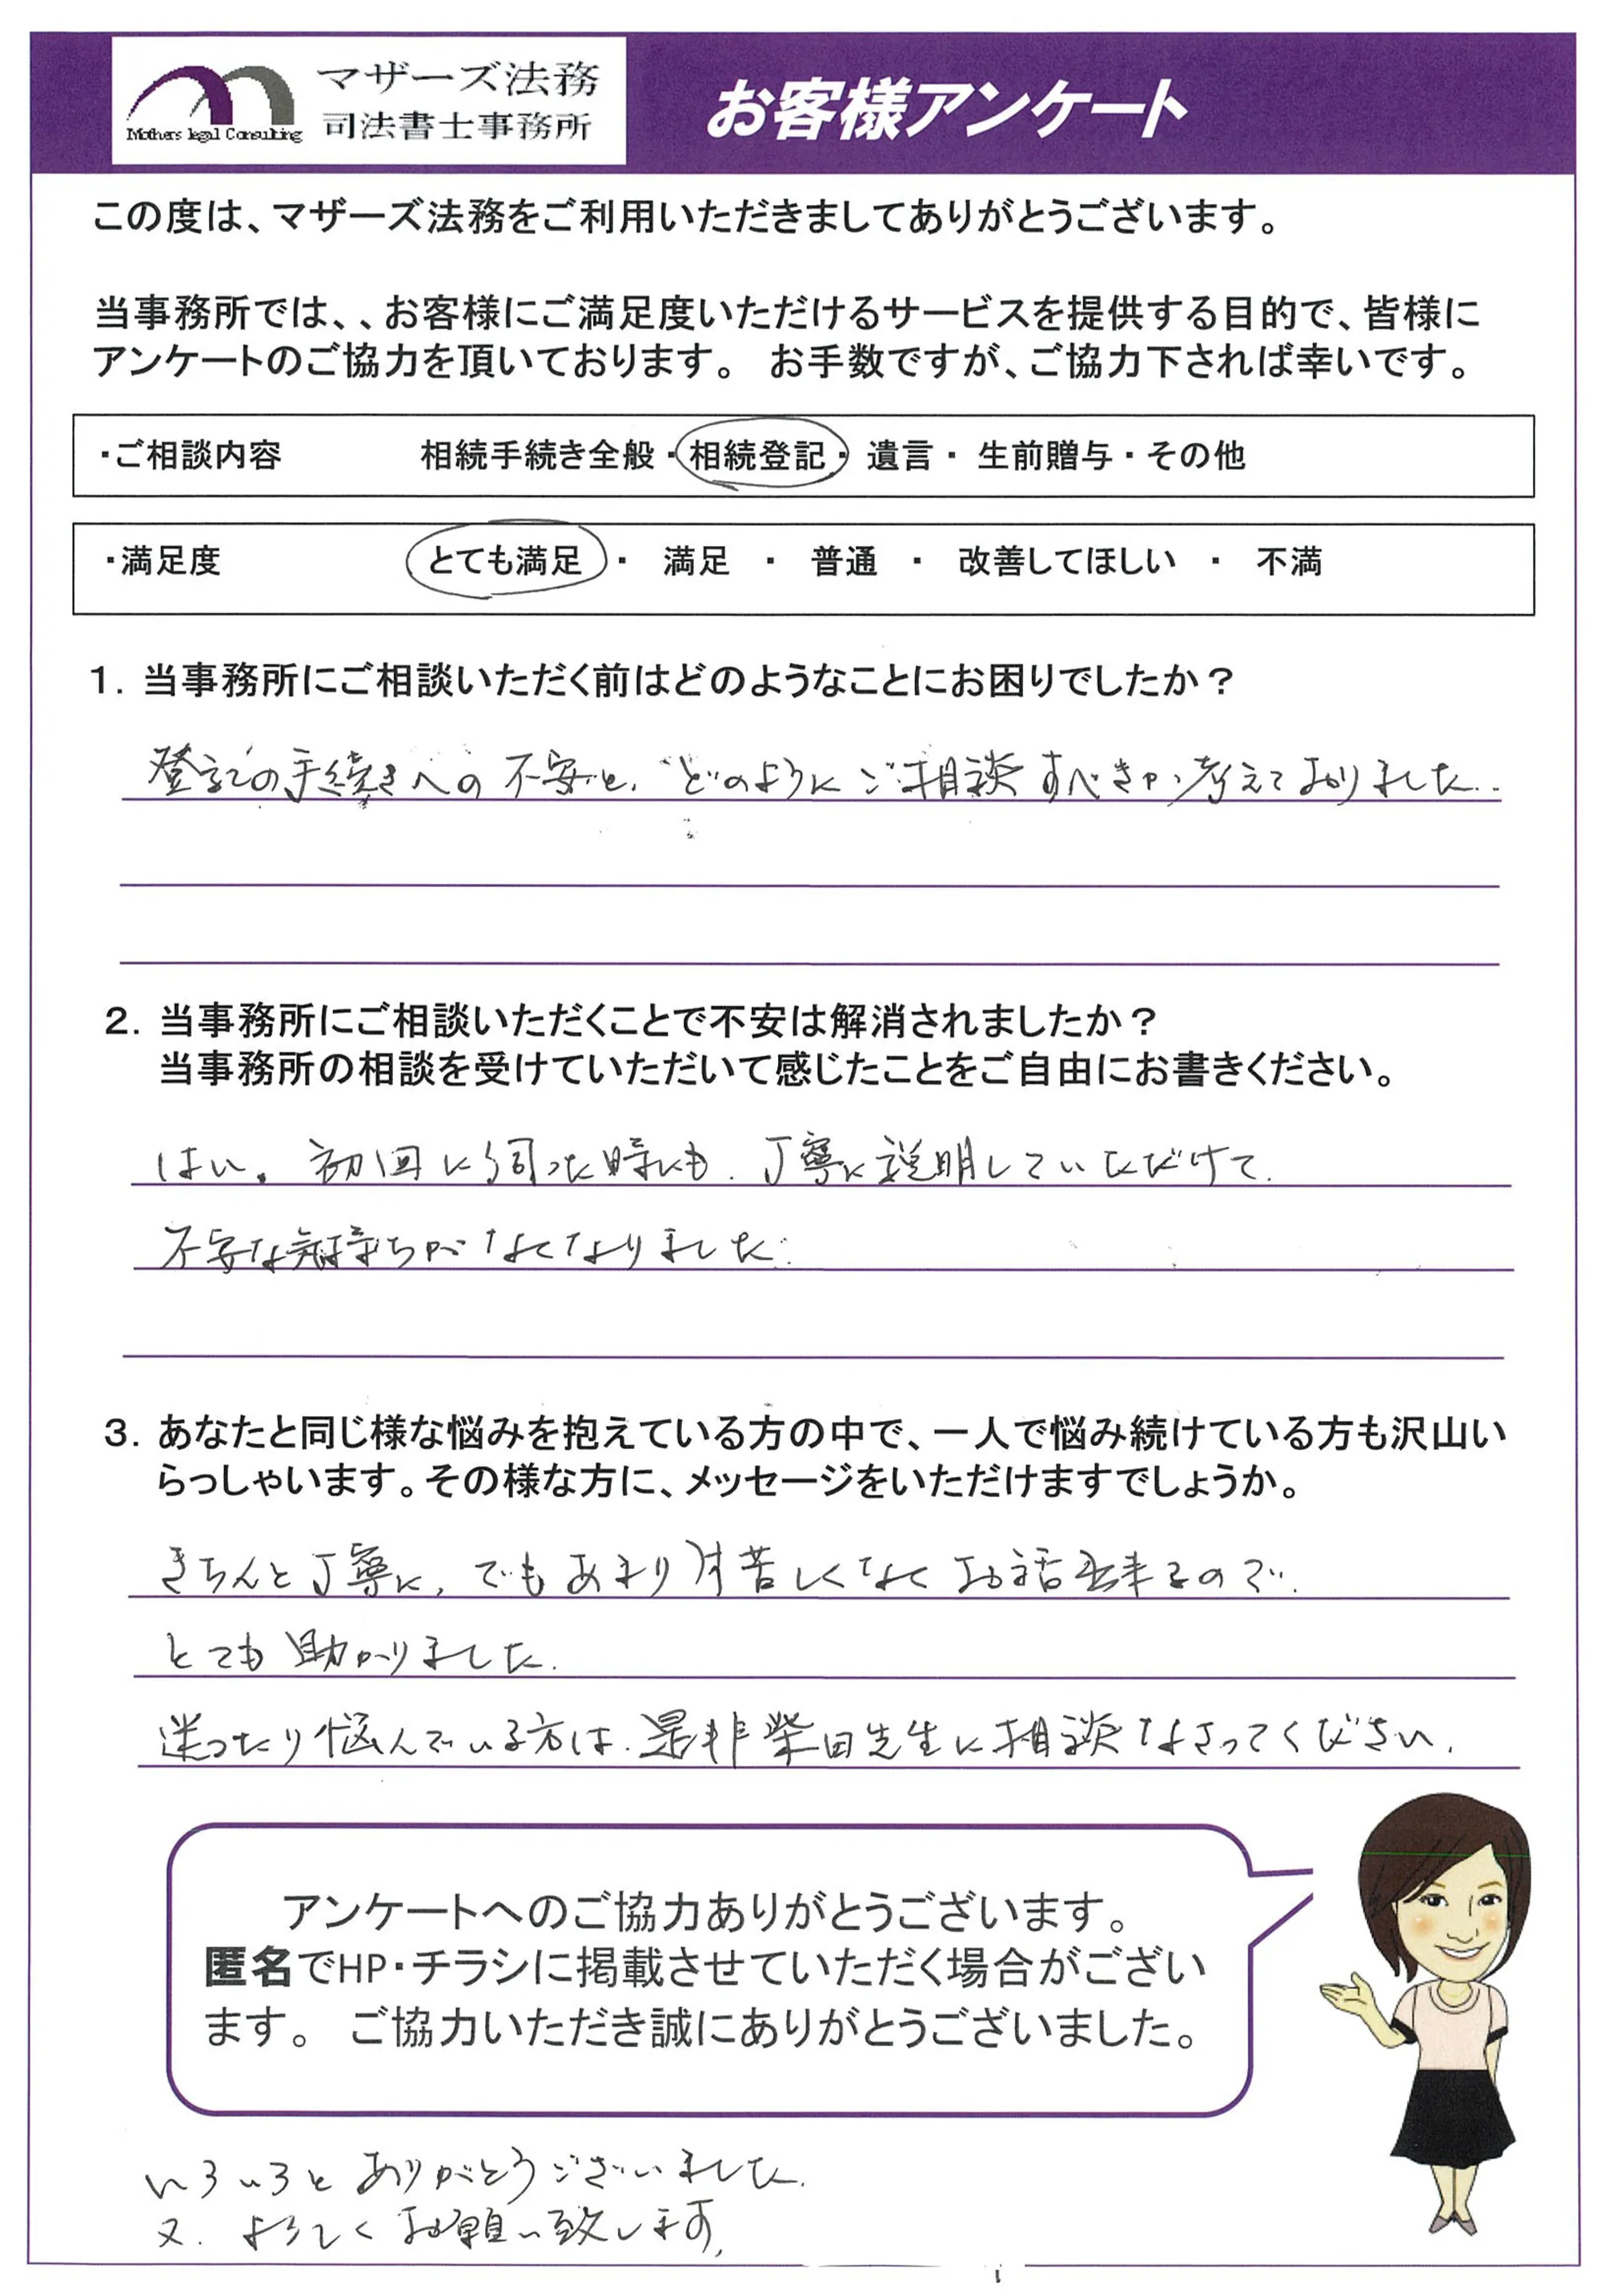 マザーズ法務
司法書士事務所
Mothers legal Consulting
お客様アンケート
この度は、マザーズ法務をご利用いただきましてありがとうございます。
当事務所では、、お客様にご満足度いただけるサービスを提供する目的で、皆様に
アンケートのご協力を頂いております。 お手数ですが、ご協力下されば幸いです。
・ご相談内容 相続手続き全般・相続登記・遺言・生前贈与・その他
・満足度 とても満足・満足・普通・改善してほしい・不満
1. 当事務所にご相談いただく前はどのようなことにお困りでしたか？
登記の手続きへの不安と、どのようにご相談すべきか考えておりました。
2. 当事務所にご相談いただくことで不安は解消されましたか？
当事務所の相談を受けていただいて感じたことをご自由にお書きください。
はい。初回に伺った時にも、丁寧に説明していただけて、
不安な気持ちがなくなりました。
3. あなたと同じ様な悩みを抱えている方の中で、一人で悩み続けている方も沢山い
らっしゃいます。その様な方に、メッセージをいただけますでしょうか。
きちんと丁寧に、でもあまり堅苦しくなくお話出来るので、
とても助かりました。
迷ったり悩んでいる方は、是非柴田先生に相談なさってください。
アンケートへのご協力ありがとうございます。
匿名でHP・チラシに掲載させていただく場合がござい
ます。 ご協力いただき誠にありがとうございました。
いろいろとありがとうございました。
又、よろしくお願い致します。